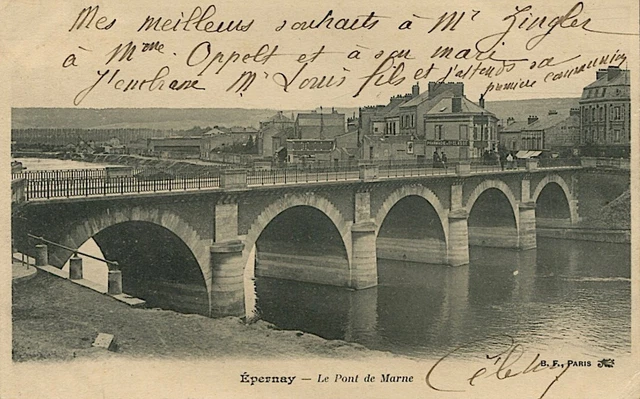 Mes meilleurs souhaits à Mr Zingler
à Mme. Oppolt et à son mari
J'embrasse Mr Louis fils et j'attends sa
première communion
Épernay — Le Pont de Marne
B. F., PARIS